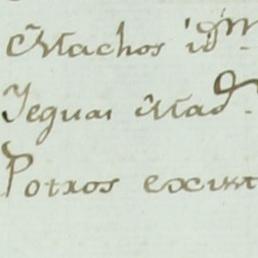 Machos id.m
Yeguas Mad.
Potros exist